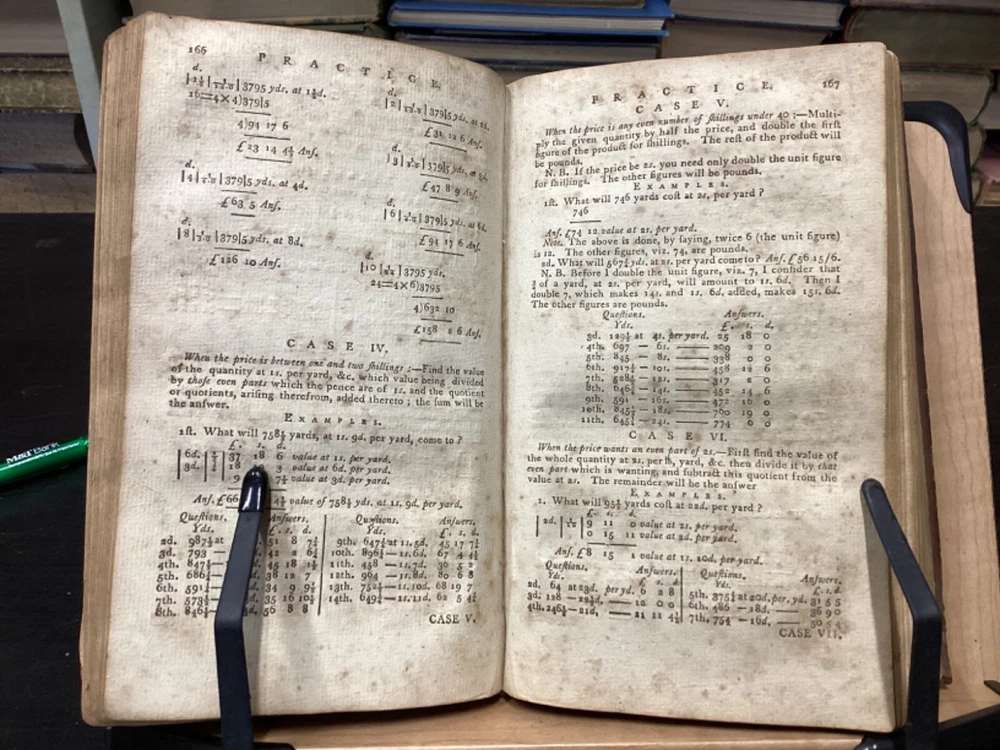 166
PRACTICE.
d.
3795 yds. at 1½d.
16=4×4)379|5
4)94 17 6
£23 14 4½ Anſ.
d.
|4| 379|5 yds. at 4d.
£63 5 Anſ.
d.
|8| 379|5 yds. at 8d.
£126 10 Anſ.
d.
|2| 379|5 yds. at 2d.
£31 12 6 Anſ.
d.
|3| 379|5 yds. at
£47 8 9 Anſ.
d.
|6| 379|5 yds. at 6d.
£94 17 6 Anſ.
d.
|10| 3795 yds.
24=4×6)3795
4)632 10
£158 2 6 Anſ.
CASE IV.
When the price is between one and two ſhillings:—Find the value
of the quantity at 1s. per yard, &c. which value being divided
by thoſe even parts which the pence are of 1s. and the quotient
or quotients, ariſing therefrom, added thereto; the ſum will be
the anſwer.
EXAMPLES.
1ſt. What will 758½ yards, at 1s. 9d. per yard, come to?
£. s. d.
6d. ½ 37 18 6 value at 1s. per yard.
3d. ½ 18 3 value at 6d. per yard.
9 7½ value at 3d. per yard.
Anſ. £66 4½ value of 758½ yds. at 1s. 9d. per yard.
Queſtions. Anſwers. Queſtions. Anſwers.
Yds. s. d. Yds. £. s. d.
2d. 987½ at 51 8 7½ 9th. 647½ at 1s.5d. 45 17 7½
3d. 793 — 42 2 6¾ 10th. 896½ — 1s.6d. 67 4 4½
4th. 847½ 45 18 1½ 11th. 458 — 1s.7d. 36 5 2
5th. 686½ 38 12 7 12th. 964 — 1s.8d. 80 6 8
6th. 591½ 34 9 9½ 13th. 752½ — 1s.10d. 68 19 7
7th. 573½ 35 16 10½ 14th. 649½ — 1s.11d. 62 5 4½
8th. 846½ d. 56 8 8
CASE V.
167
PRACTICE.
CASE V.
When the price is any even number of ſhillings under 40;—Multi-
ply the given quantity by half the price, and double the firſt
figure of the product for ſhillings. The reſt of the product will
be pounds.
N. B. If the price be 2s. you need only double the unit figure
for ſhillings. The other figures will be pounds.
EXAMPLES.
1ſt. What will 746 yards coſt at 2s. per yard?
746
Anſ. £74 12 value at 2s. per yard.
Note. The above is done, by ſaying, twice 6 (the unit figure)
is 12. The other figures, viz. 74, are pounds.
2d. What will 567¾ yds. at 2s. per yard come to? Anſ. £56 15/6.
N. B. Before I double the unit figure, viz. 7, I conſider that
¾ of a yard, at 2s. per yard, will amount to 1s. 6d. Then I
double 7, which makes 14s. and 1s. 6d. added, makes 15s. 6d.
The other figures are pounds.
Queſtions. Anſwers.
Yds. £. s. d.
3d. 129½ at 4s. per yard. 25 18 0
4th. 697 — 6s. — 209 2 0
5th. 845 — 8s. — 338 0 0
6th. 917¼ — 10s. — 458 12 6
7th. 528½ — 12s. — 317 2 0
8th. 646½ — 14s. — 452 14 6
9th. 591 — 16s. — 472 16 0
10th. 845½ — 18s. — 760 19 0
11th. 645½ — 24s. — 774 0 0
CASE VI.
When the price wants an even part of 2s.—Firſt find the value of
the whole quantity at 2s. per lb, yard, &c. then divide it by that
even part which is wanting, and ſubtract this quotient from the
value at 2s. The remainder will be the anſwer
EXAMPLES.
1. What will 95½ yards coſt at 22d. per yard?
£. s. d.
2d. 9 11 0 value at 2s. per yard.
0 15 11 value at 2d. per yard.
Anſ. £8 15 1 value at 1s. 10d. per yard.
Queſtions. Anſwers. Queſtions. Anſwers.
Yds. £. s. d. Yds. £. s. d.
2d. 64 at 23d. per yd. 6 2 8 5th. 375½ at 20d. per. yd. 31 5 5
3d. 128 — 22½d. — 12 0 0 6th. 486 — 18d. — 36 9 0
4th. 246½ — 21d. — 21 11 4½ 7th. 754 — 16d. — 50 5 4
CASE VII.